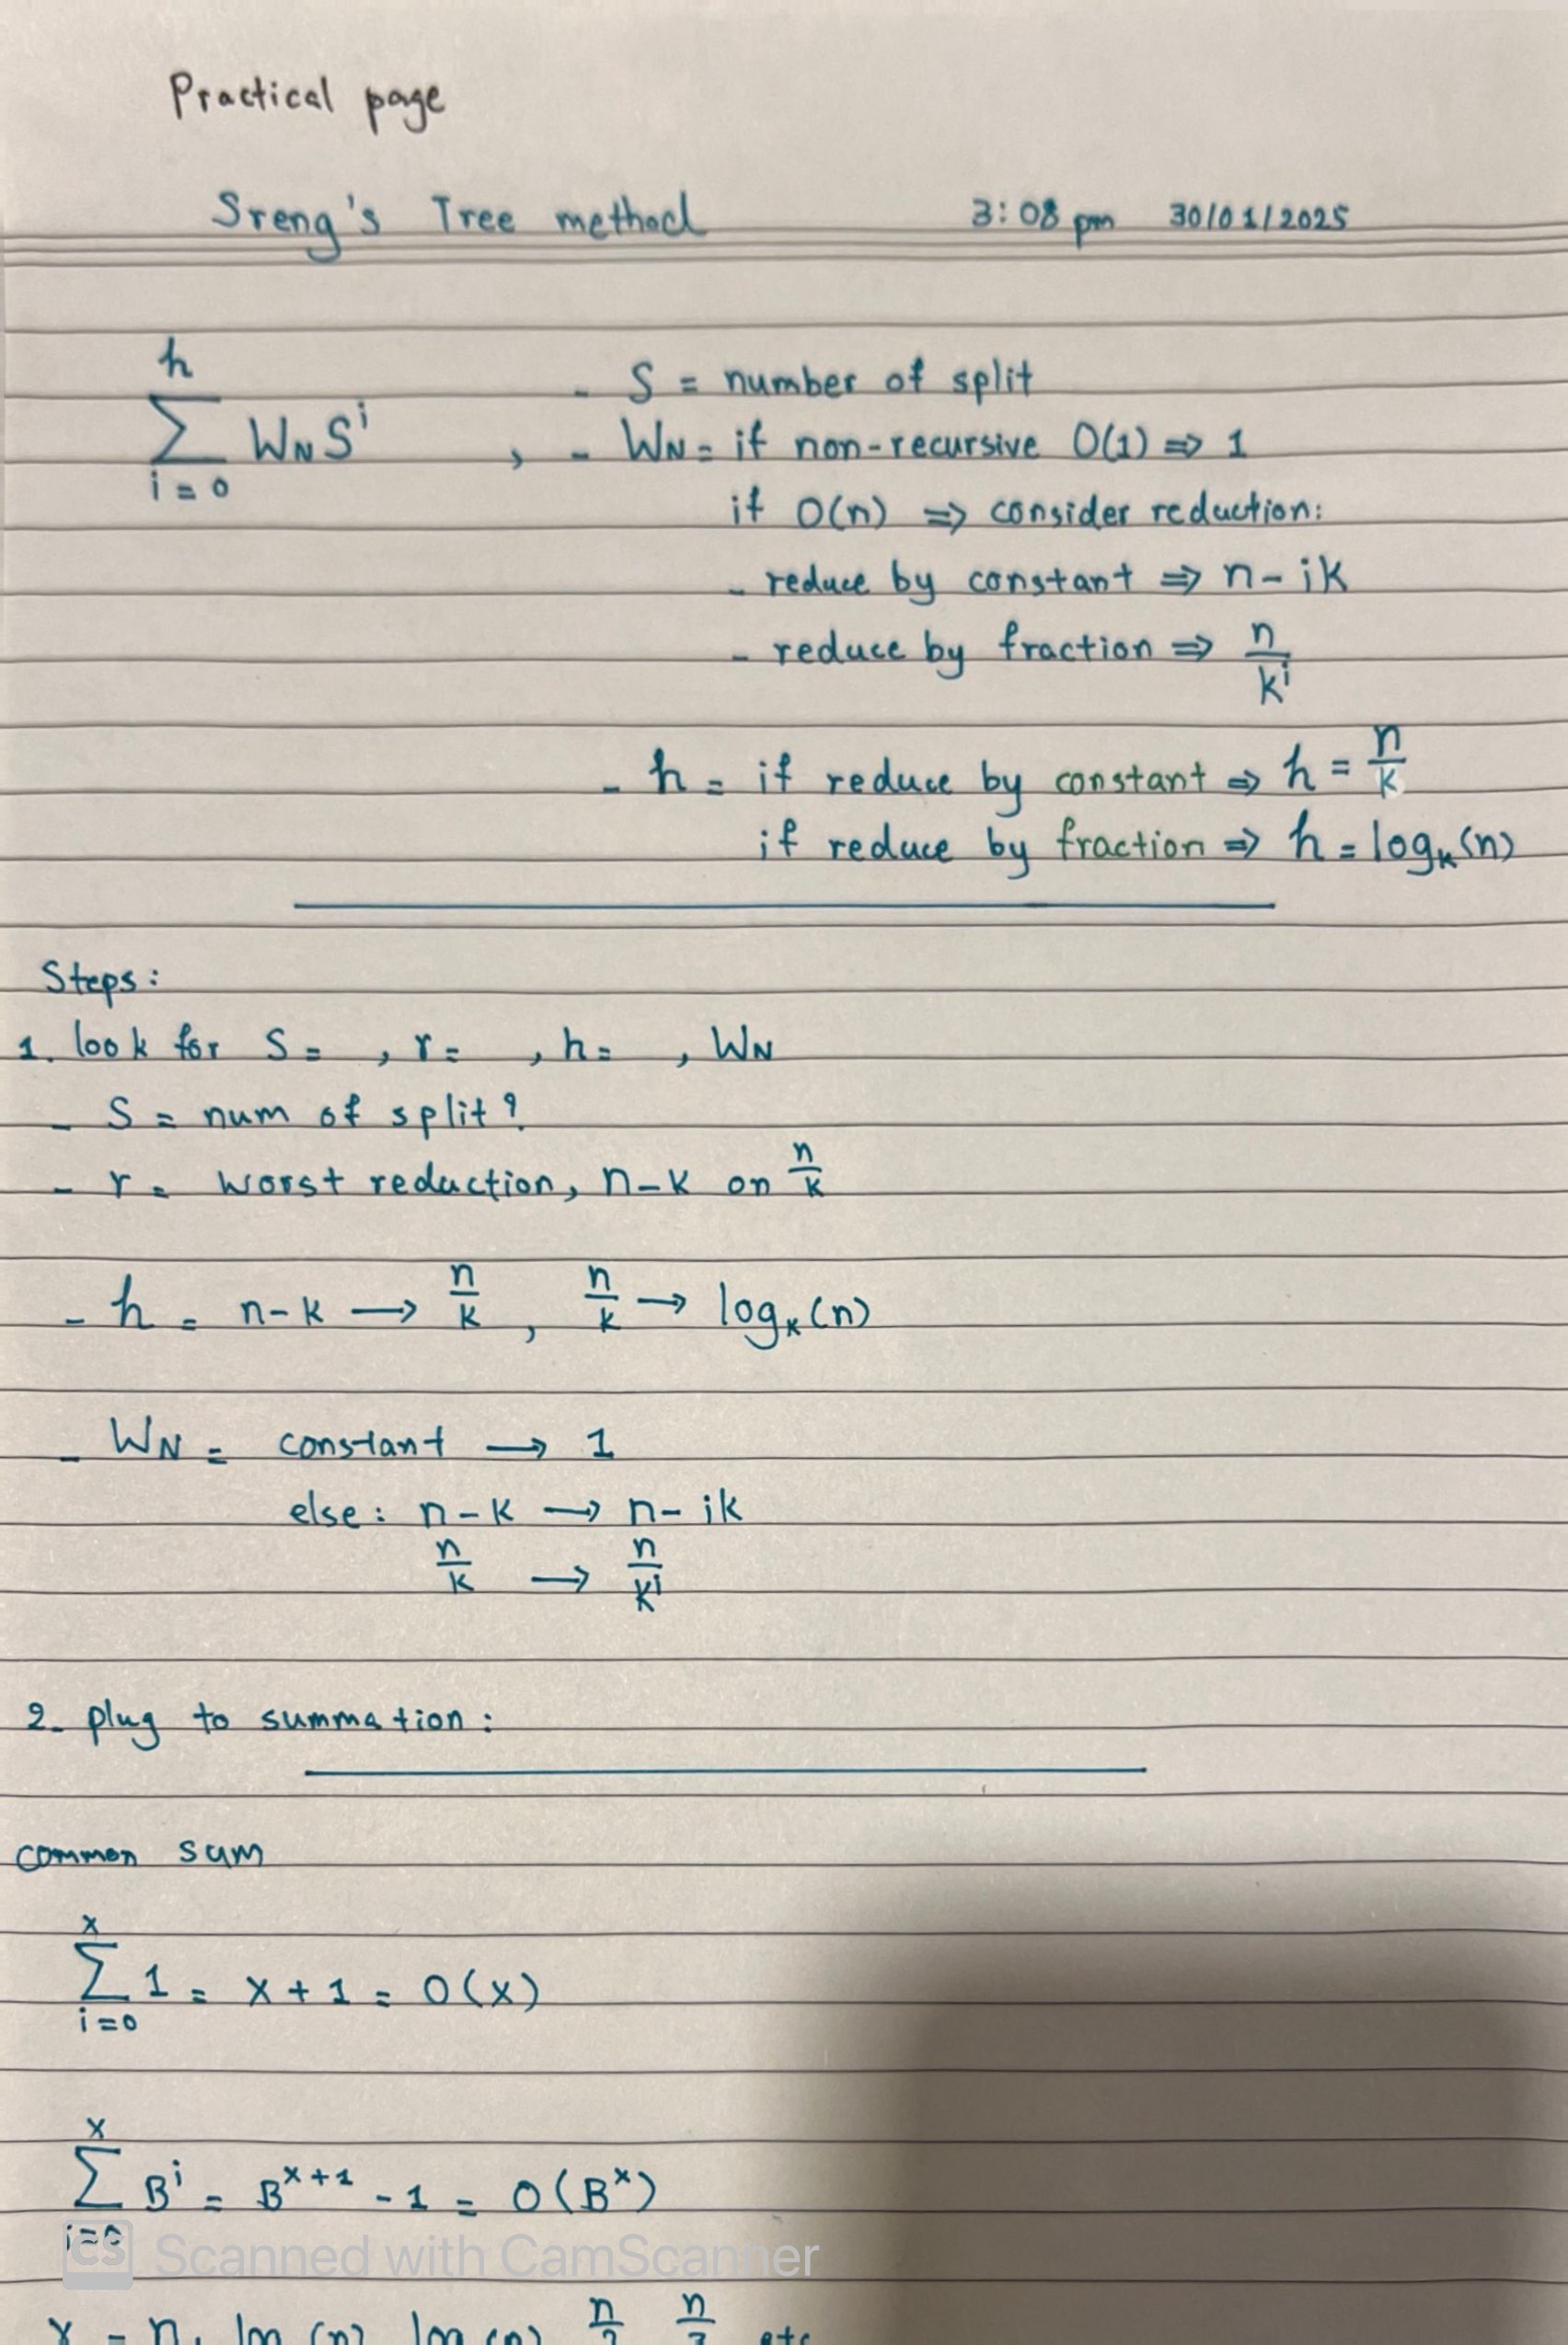 Practical page
Sreng's Tree method 3:08 pm 30/01/2025
h
∑ WN S^i , - S = number of split
i = 0
- WN = if non-recursive O(1) ⇒ 1
if O(n) ⇒ consider reduction:
- reduce by constant ⇒ n - ik
- reduce by fraction ⇒ n/k^i
- h = if reduce by constant ⇒ h = n/k
if reduce by fraction ⇒ h = log_k(n)
Steps:
1. look for S = , r = , h = , WN
- S = num of split?
- r = worst reduction, n - k on n/k
- h = n - k → n/k , n/k → log_k(n)
- WN = constant → 1
else: n - k → n - ik
n/k → n/k^i
2- plug to summation:
common sum
x
∑ 1 = x + 1 = O(x)
i=0
x
∑ B^i = B^(x+1) - 1 = O(B^x)
i=0
CS Scanned with CamScanner
x = n, log (n), log (n), n/2 n/3 etc